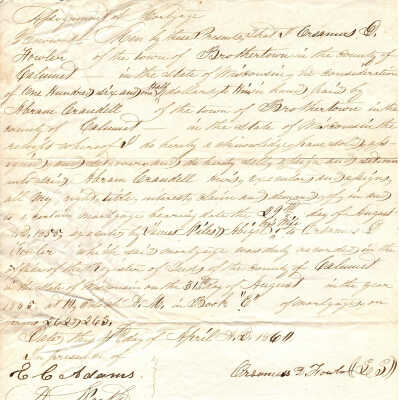 Assignment of Mortgage
Know all Men by these Presents, that I Erasmus D.
Fowler of the town of Brothertown in the county of
Calumet in the State of Wisconsin, the consideration
of One Hundred Sixty and dollars to me in hand paid by
Abram Crandell of the town of Brothertown in the
county of Calumet in the State of Wisconsin the
receipt whereof I do hereby acknowledge have sold, as-
and do hereby sell, assign and set over
unto said Abram Crandell heirs, executors and assigns,
all my right, title, interest, claim and demand of, in and
to a certain mortgage bearing date the 29th day of August
A.D. 1855, executed by Abigail to Erasmus D.
Fowler which said mortgage was duly recorded in the
Office of the Register of Deeds of the county of Calumet
in the State of Wisconsin on the 31st day of August in the year
1855 at M, in Book "C" of mortgages on
pages 262, 263.
Dated this day of April A.D. 1860
In presence of
E C Adams. Erasmus D. Fowler (L.S.)